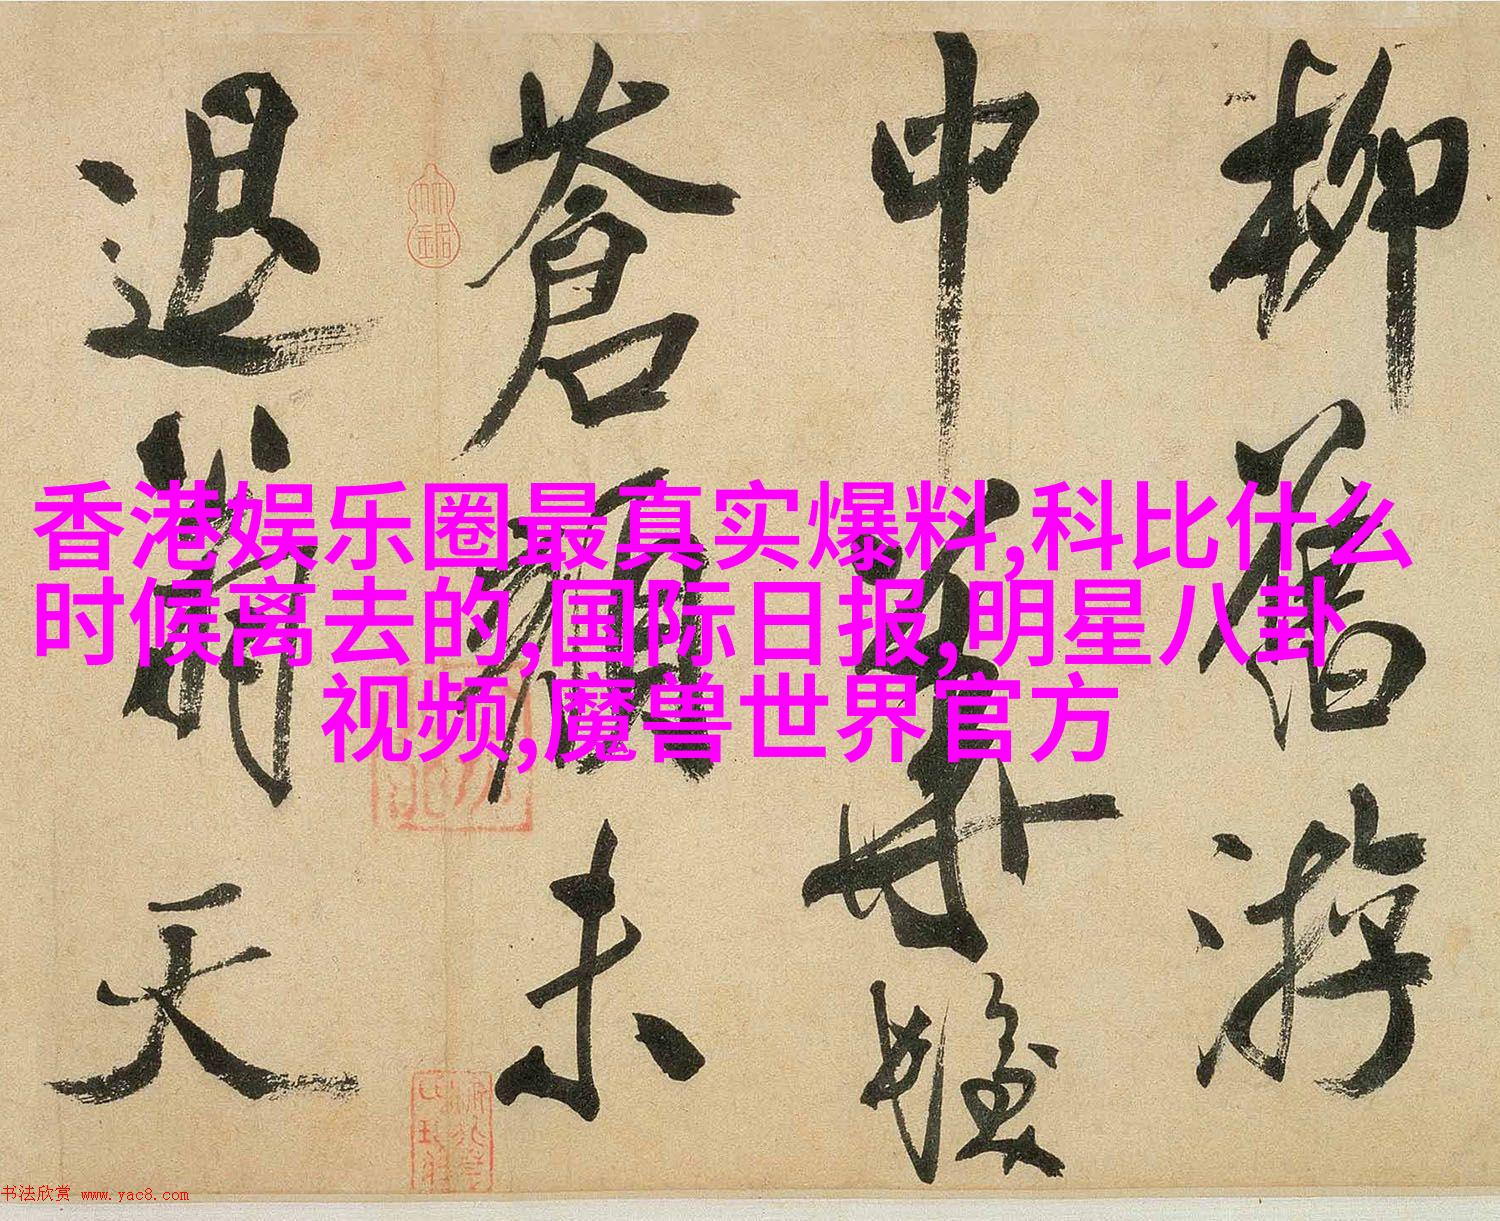 柳舊游
中
蒼顏未
退天
香港娱乐圈最真实爆料,科比什么
时候离去的,国际日报,明星八卦
视频,魔兽世界官方
书法欣赏 www.yac8.com